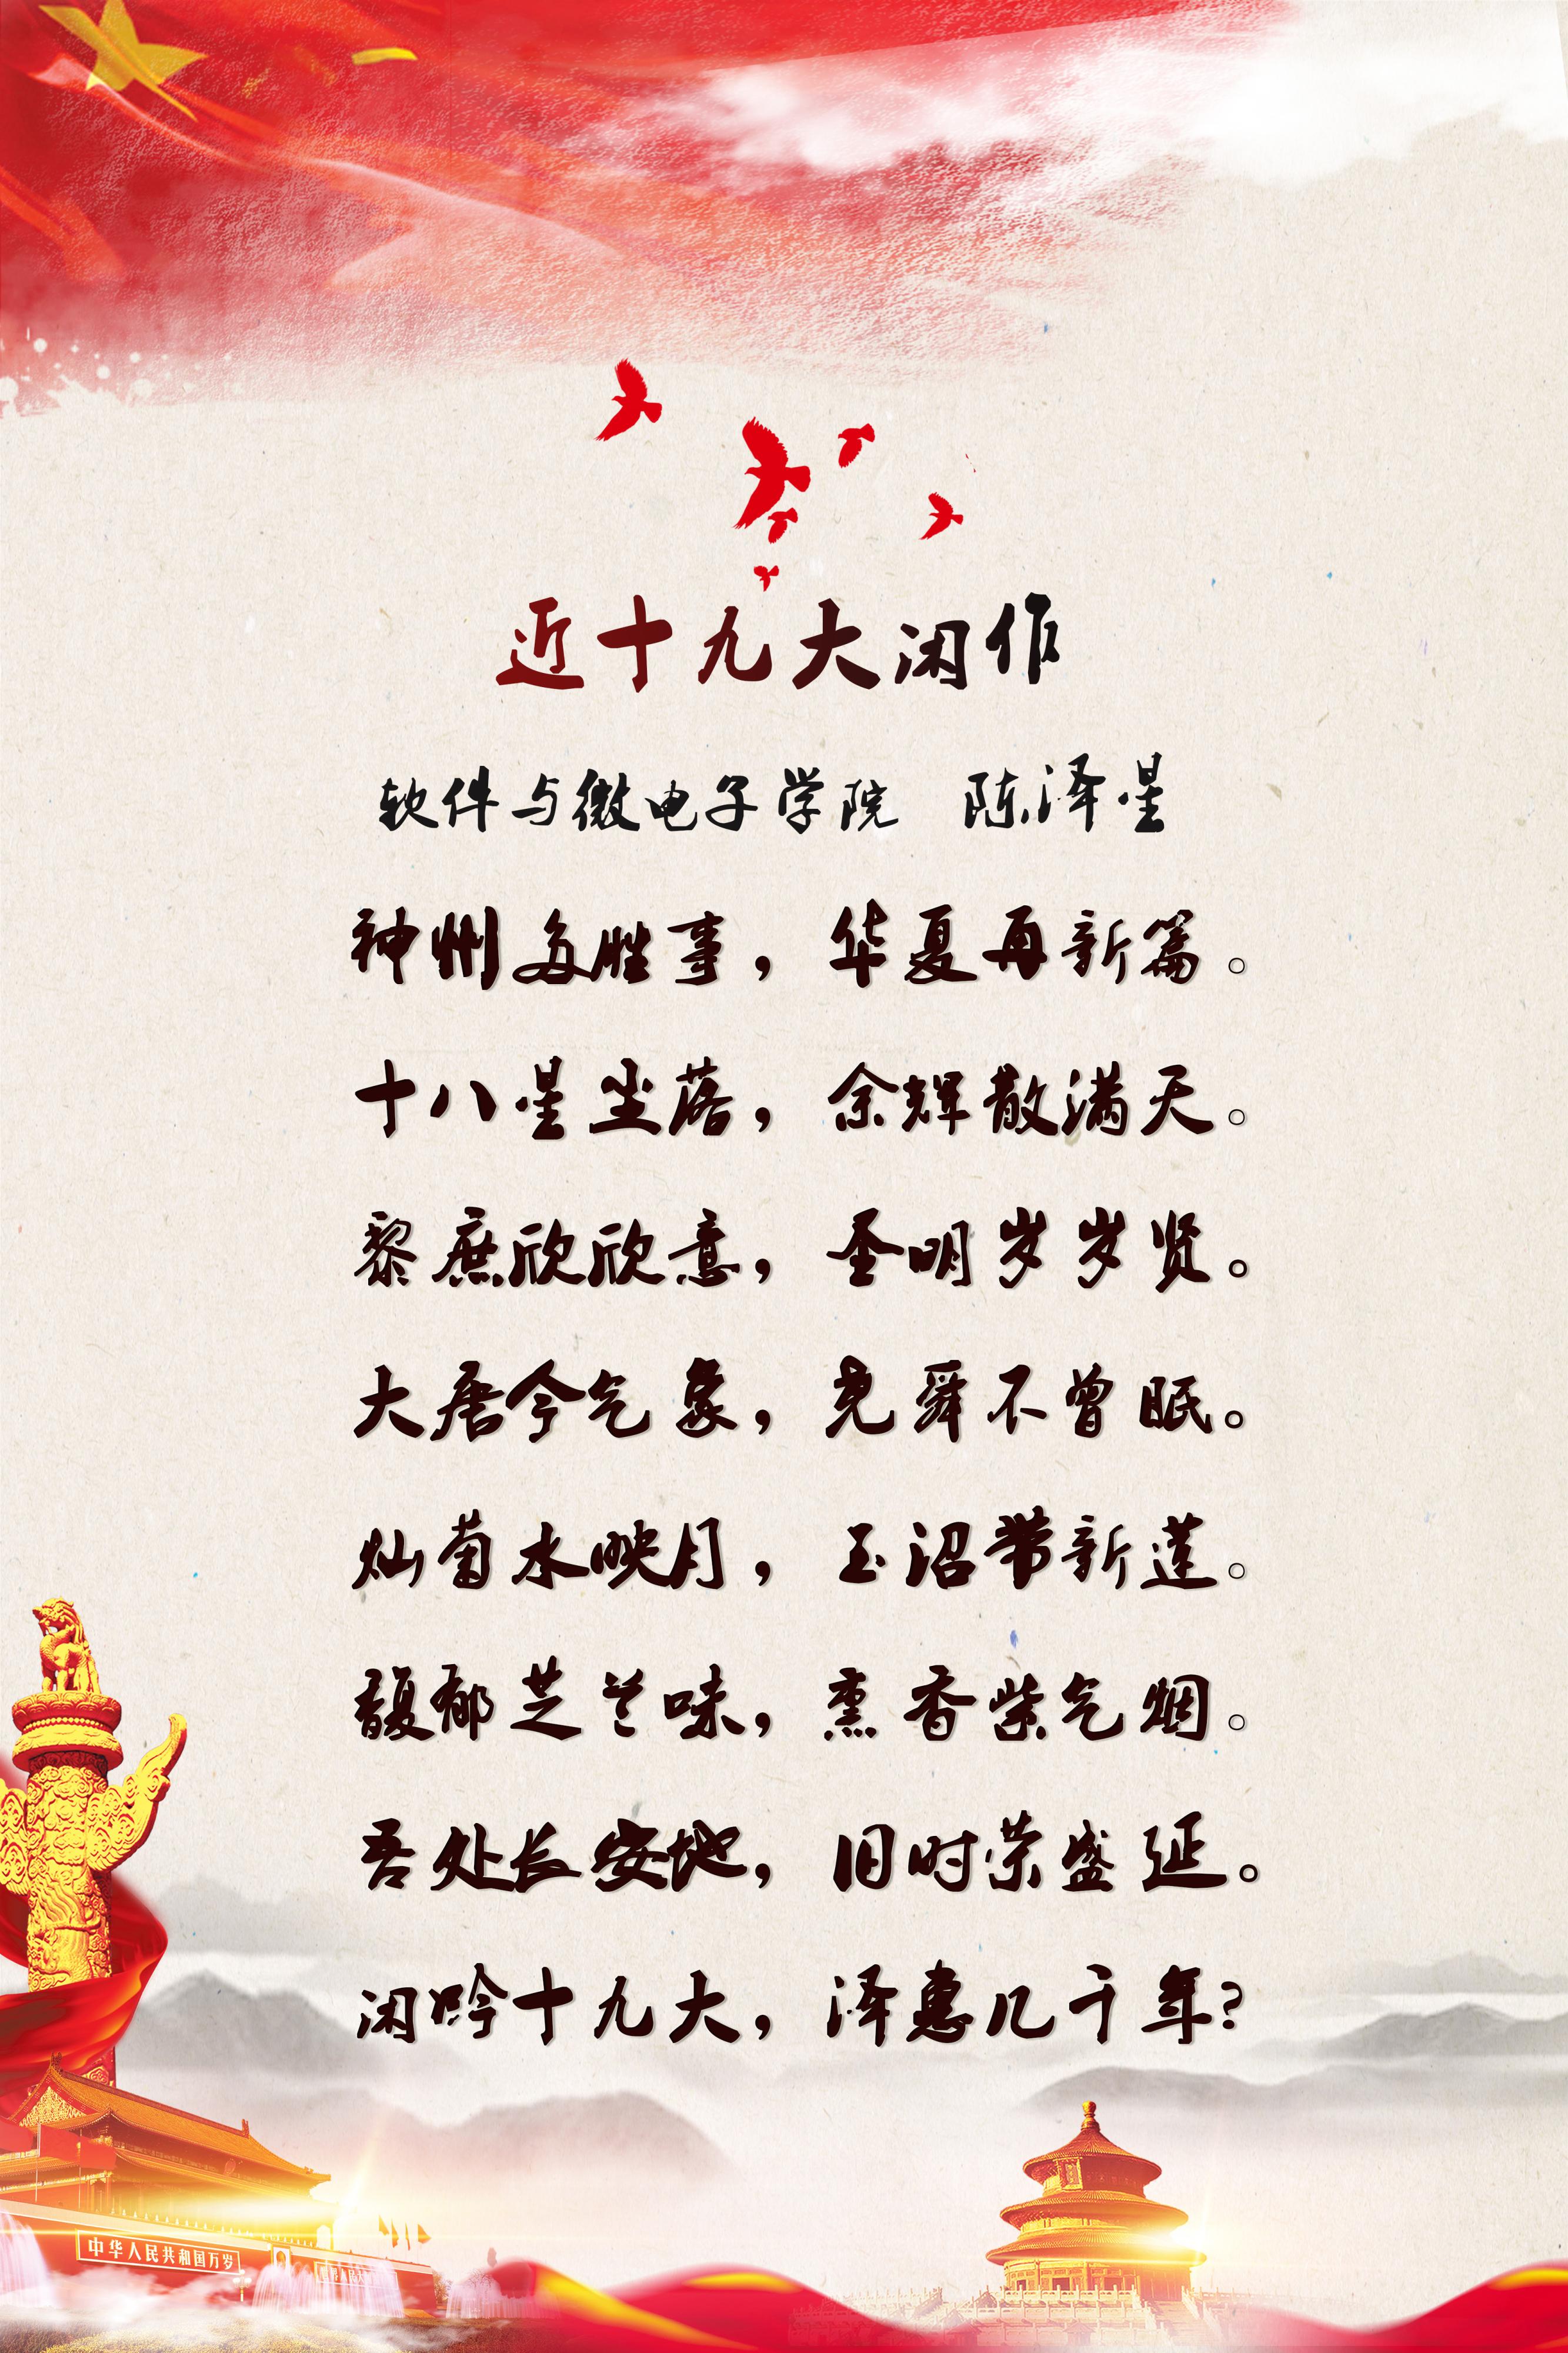 近十九大闲作
软件与微电子学院 陈泽星
神州多胜事，华夏再新篇。
十八星坐落，余辉散满天。
黎庶欣欣意，圣明岁岁贤。
大唐今气象，尧舜不曾眠。
灿菊水映月，玉沼带新莲。
馥郁芝兰味，熏香紫气烟。
吾处长安地，旧时荣盛延。
闲吟十九大，泽惠几千年?
中华人民共和国万岁